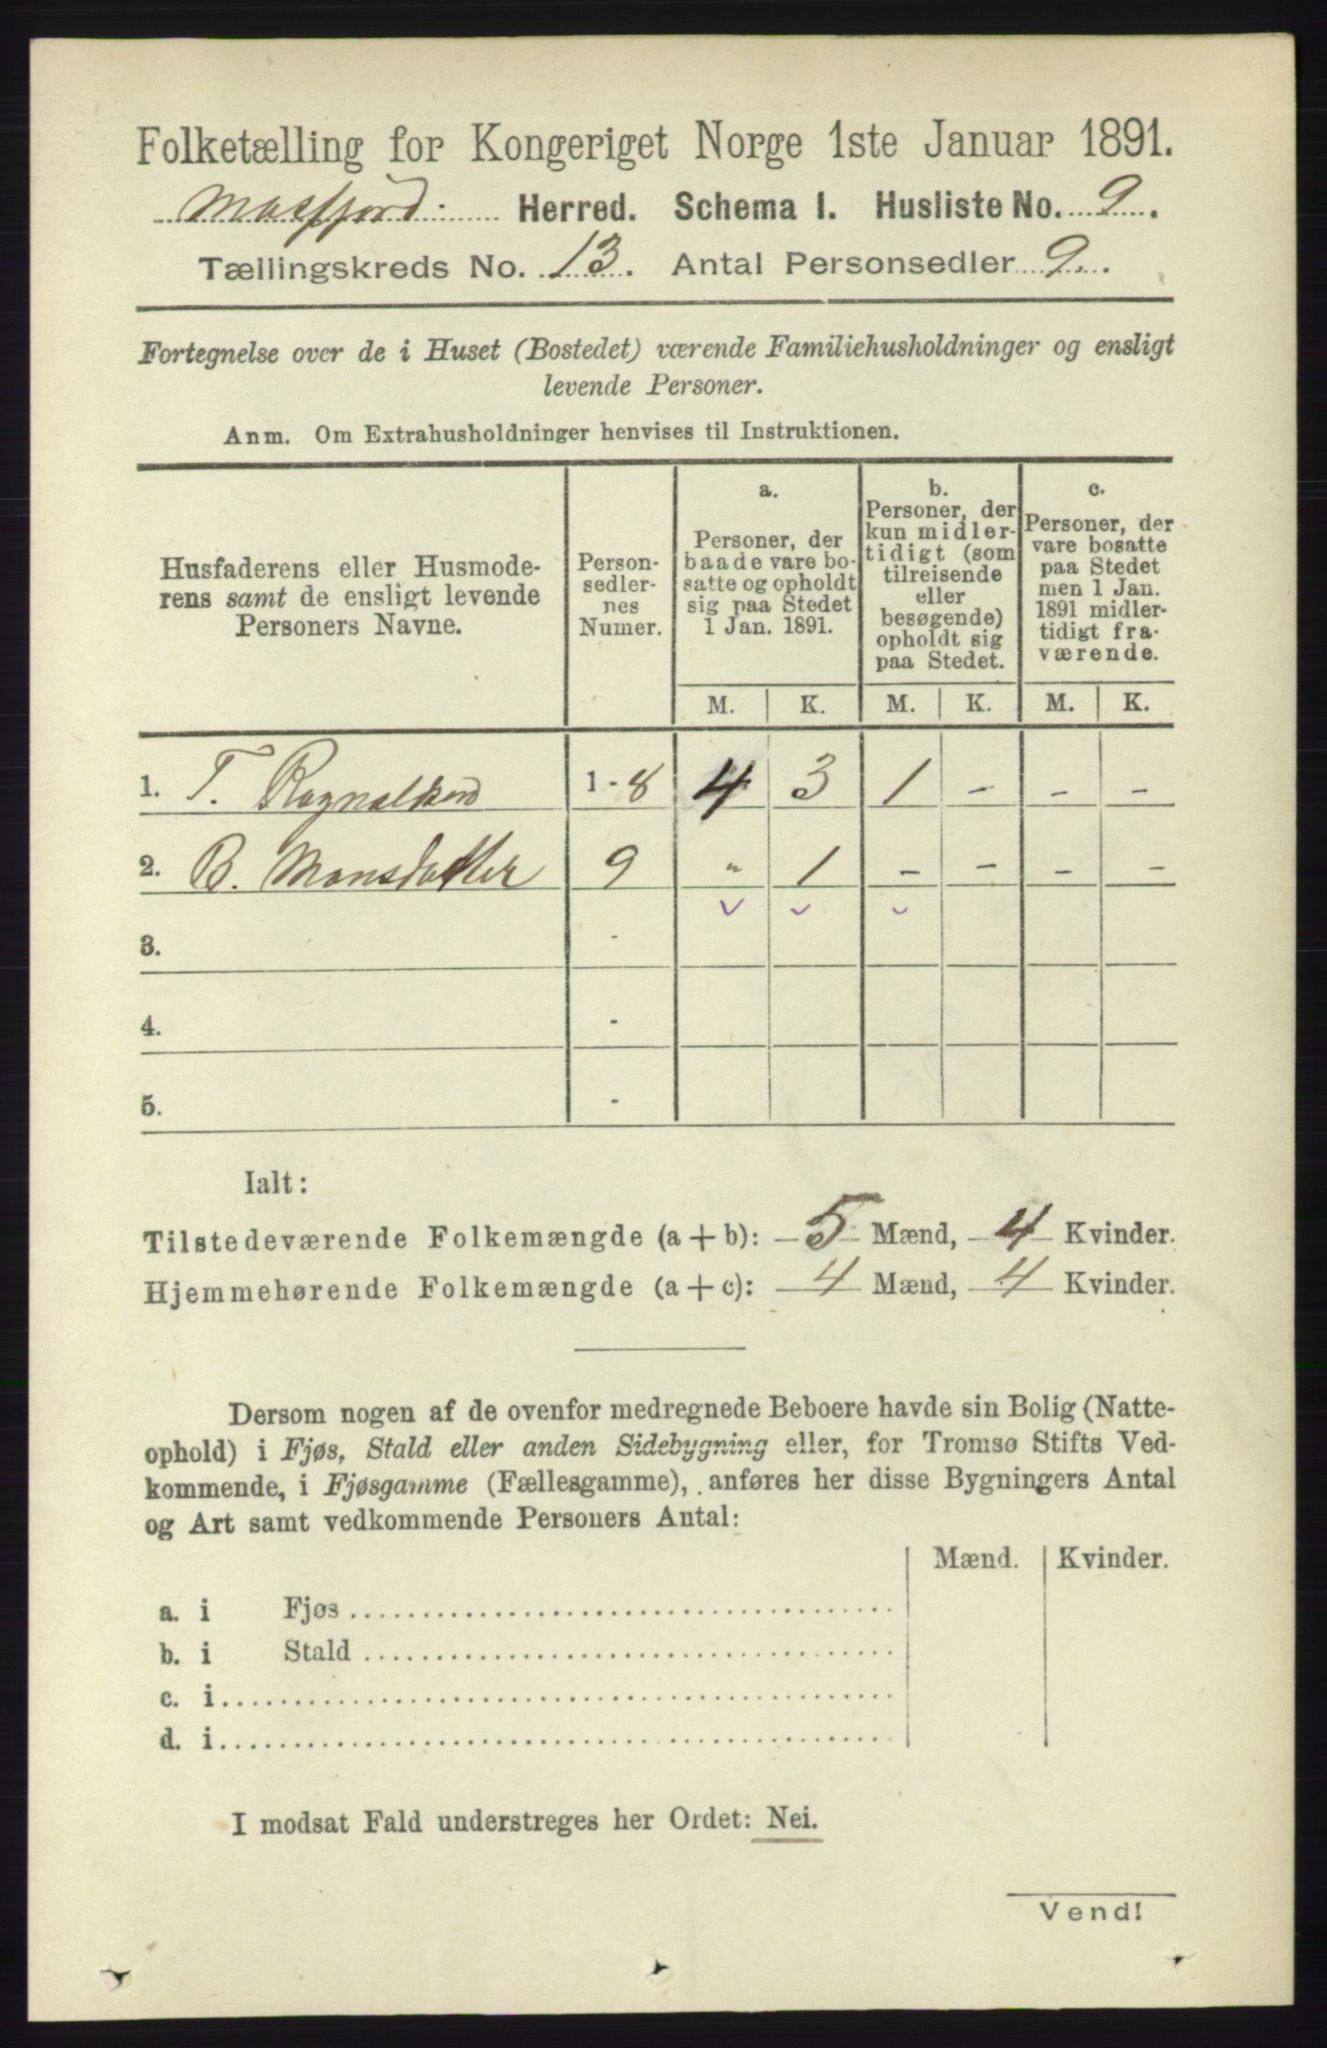 Folketælling for Kongeriget Norge 1ste Januar 1891.
Masfjord. Herred. Schema I. Husliste No. 9.
Tællingskreds No. 13. Antal Personsedler 9.
Fortegnelse over de i Huset (Bostedet) værende Familiehusholdninger og ensligt
levende Personer.
Anm. Om Extrahusholdninger henvises til Instruktionen.
Husfaderens eller Husmode-
rens samt de ensligt levende
Personers Navne.
Person-
sedler-
nes
Numer.
a.
Personer, der
baade vare bo-
satte og opholdt
sig paa Stedet
1 Jan. 1891.
b.
Personer, der
kun midler-
tidigt (som
tilreisende
eller
besøgende)
opholdt sig
paa Stedet.
c.
Personer, der
vare bosatte
paa Stedet
men 1 Jan.
1891 midler-
tidigt fra-
værende.
M. K. M. K. M. K.
1. T. Ragnalksen 1 - 8 4 3 1 - - -
2. B. Monsdatter 9 " 1 - - - -
3. -
4. -
5. -
Ialt:
Tilstedeværende Folkemængde (a + b): 5 Mænd, 4 Kvinder.
Hjemmehørende Folkemængde (a + c): 4 Mænd, 4 Kvinder.
Dersom nogen af de ovenfor medregnede Beboere havde sin Bolig (Natte-
ophold) i Fjøs, Stald eller anden Sidebygning eller, for Tromsø Stifts Ved-
kommende, i Fjøsgamme (Fællesgamme), anføres her disse Bygningers Antal
og Art samt vedkommende Personers Antal:
Mænd. Kvinder.
a. i Fjøs
b. i Stald
c. i
d. i
I modsat Fald understreges her Ordet: Nei.
Vend!